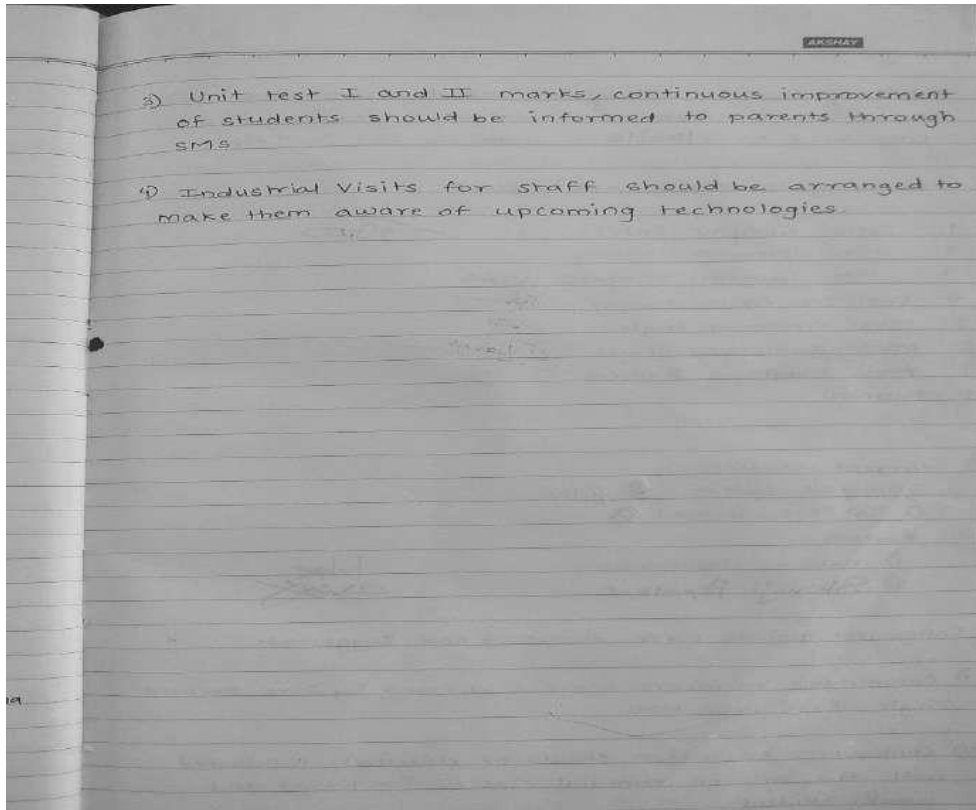 AKSHAY
3) Unit test I and II marks, continuous improvement
of students should be informed to parents through
SMS
4) Industrial Visits for staff should be arranged to
make them aware of upcoming technologies.